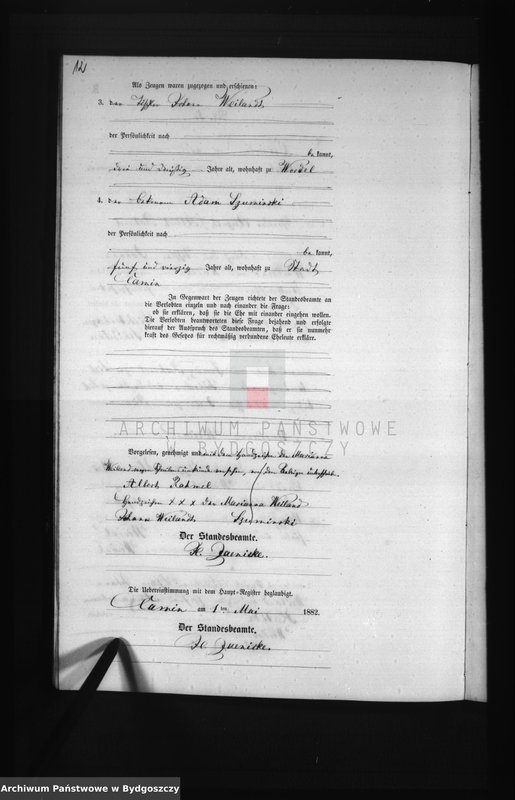 12
Als Zeugen waren zugezogen und erschienen:
3. der Johann Weilandt
der Persönlichkeit nach
be kannt,
drei und dreißig Jahre alt, wohnhaft zu
4. der Adam Szuminski
der Persönlichkeit nach
be kannt,
fünf und vierzig Jahre alt, wohnhaft zu Stadt
Camin
In Gegenwart der Zeugen richtete der Standesbeamte an
die Verlobten einzeln und nach einander die Frage:
ob sie erklären, daß sie die Ehe mit einander eingehen wollen.
Die Verlobten beantworteten diese Frage bejahend und erfolgte
hierauf der Ausspruch des Standesbeamten, daß er sie nunmehr
kraft des Gesetzes für rechtmäßig verbundene Eheleute erkläre.
ARCHIWUM PAŃSTWOWE
W BYDGOSZCZY
Vorgelesen, genehmigt und mit dem Handzeichen der Marianna
Weiland wegen
Albert
Handzeichen x x x der Marianna Weiland
Johann Weilandt Szuminski
Der Standesbeamte.
Jaenicke.
Die Uebereinstimmung mit dem Haupt-Register beglaubigt.
Camin am 1ten Mai 1882.
Der Standesbeamte.
Jaenicke.
Archiwum Państwowe w Bydgoszczy